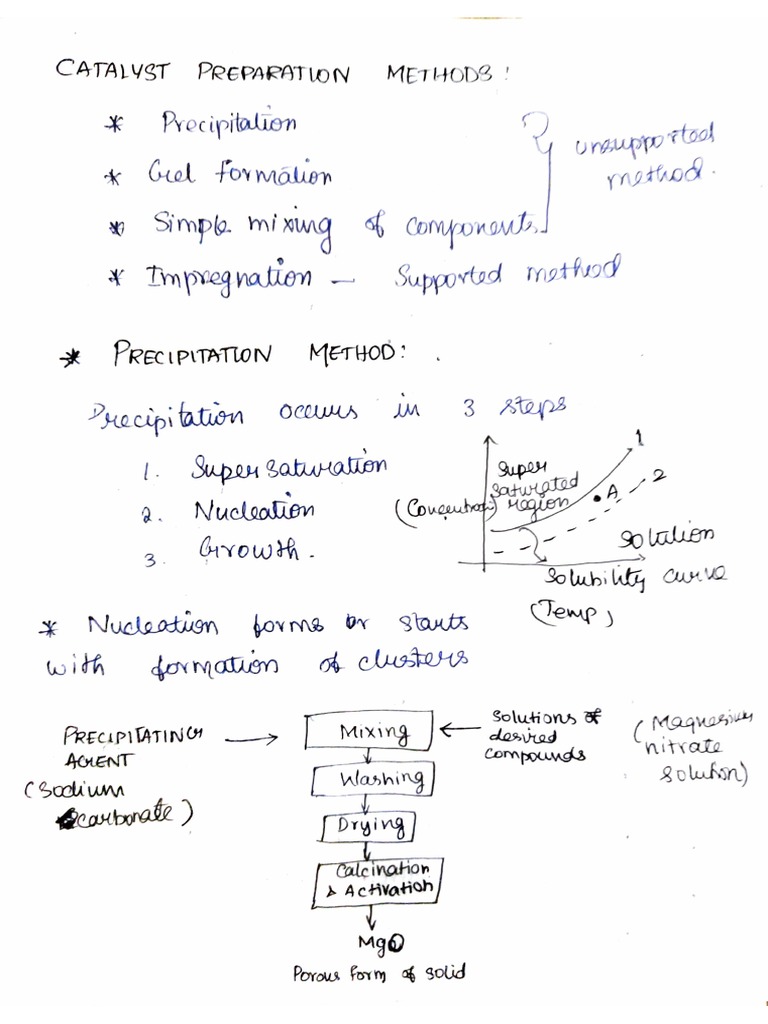 CATALYST PREPARATION METHODS:
* Precipitation
* Gel formation
* Simple mixing of components
unsupported
method.
* Impregnation — Supported method
* PRECIPITATION METHOD:
Precipitation occurs in 3 steps
1. Super saturation
2. Nucleation
3. Growth.
1
Super
saturated
region
2
A
(Concentration)
Solution
Solubility curve
(Temp)
* Nucleation forms or starts
with formation of clusters
PRECIPITATING
AGENT
(Sodium
carbonate)
Mixing
Solutions of
desired
compounds
(Magnesium
nitrate
solution)
Washing
Drying
Calcination
& Activation
MgO
Porous form of solid